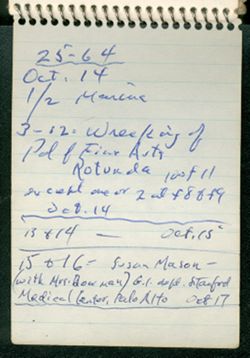 25-64
Oct. 14
1/2 Marina
3-12 = Wrecking of
Pal of Fine Arts
Rotunda 10 of 11
except over 2 at f8 & f9
Oct. 14
13 & 14 — Oct. 15
15 & 16 = Susan Mason -
(with Mrs. Bowman) G.I. dept. Stanford
Medical Center, Palo Alto Oct 17